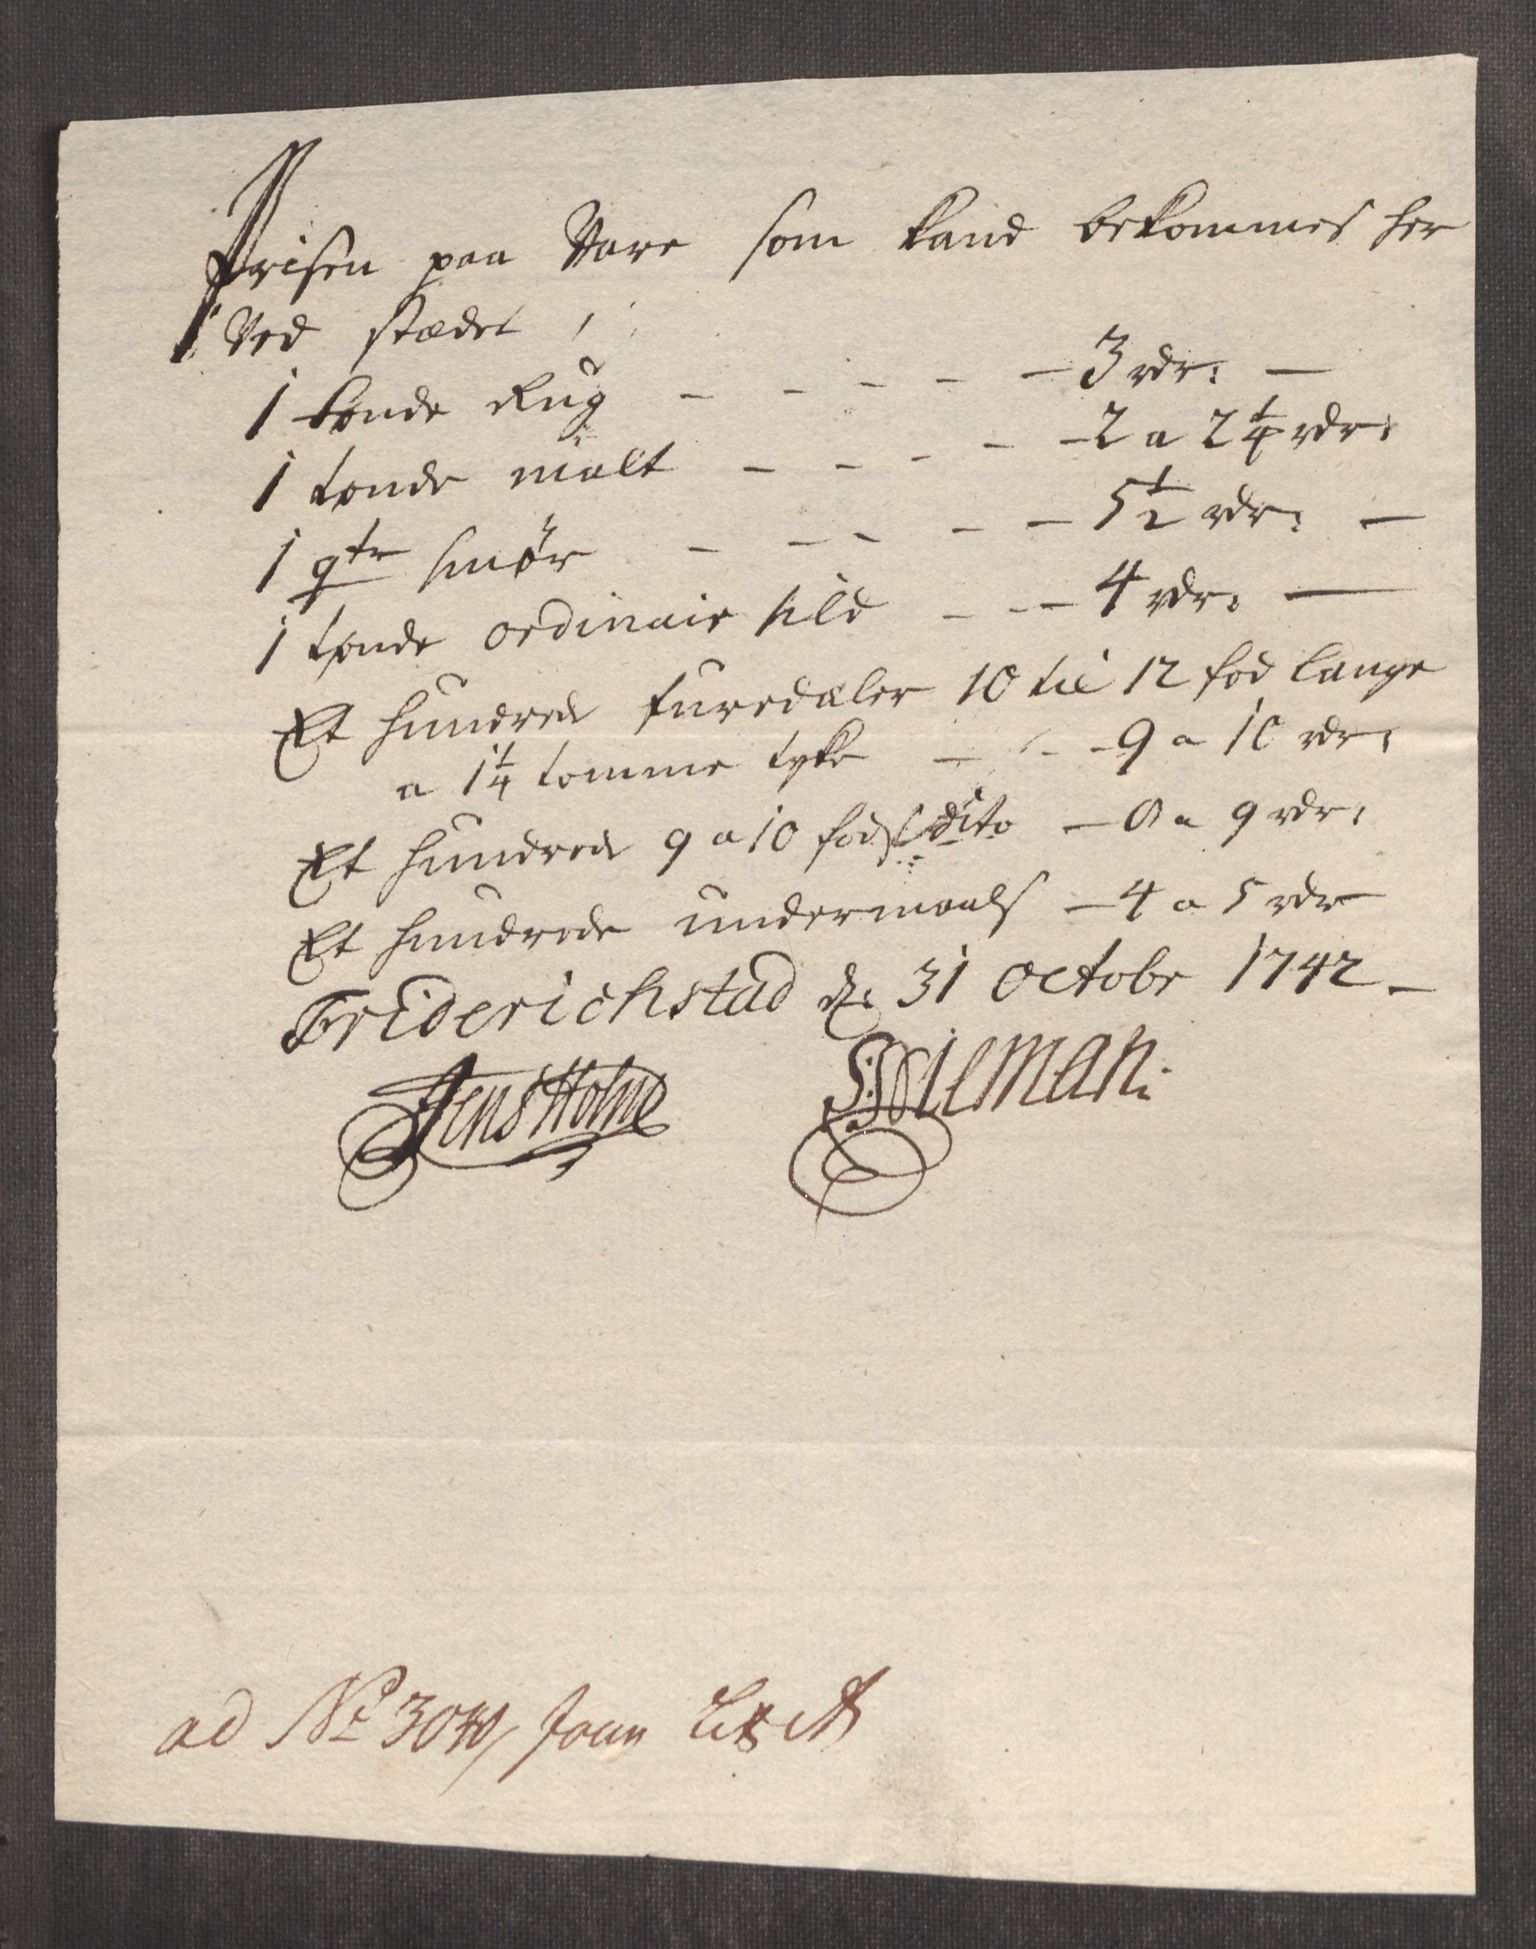 Prisen paa Vare som kand bekommes her
Ved stædet
1 tonde Rug - - - - - 3 rdr: -
1 tonde malt - - - - - 2 a 2 1/4 rdr:
1 qtr smør - - - - - 5 1/2 rdr: -
1 tonde ordinair sild - - - 4 rdr: -
Et hundrede furedæler 10 til 12 fod lange
a 1 1/4 tomme tyke - - - 9 a 10 rdr:
Et hundrede 9 a 10 fods dito - 8 a 9 rdr:
Et hundrede undermaals - 4 a 5 rdr
Friderichstad d: 31 octobr 1742 -
Jens Holm S: Wileman:
ad No